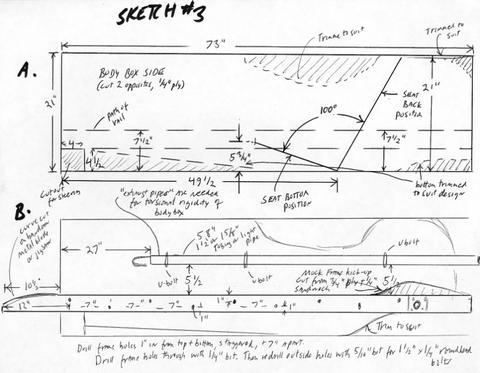 SKETCH #3
73"
Trimmed to suit
A.
BODY BOX SIDE
(cut 2 opposites, 3/4" ply)
21"
21"
SEAT BACK POSITION
100°
path of rail
7 1/2"
7 1/2"
4
4 1/2
5 3/4"
49 1/2
SEAT BOTTOM POSITION
bottom trimmed to suit design
Cutout for steering
B.
"EXHAUST PIPES" ARE needed for torsional rigidity of body box
27"
1 1/2" or 15/8" tubing or light pipe
u-bolt
u-bolt
u-bolt
5 1/2
5 1/2
Mock frame kick-up
cut from 3/4" ply +
10 1/2"
12"
7"
7"
7"
1"
7"
1"
1"
Trim to suit
Drill frame holes 1" in from top + bottom, staggered, + 7" apart.
Drill frame holes through with 1/4" bit. Then redrill outside holes with 5/16" bit for 1 1/2" x 1/4" roundhead bolts